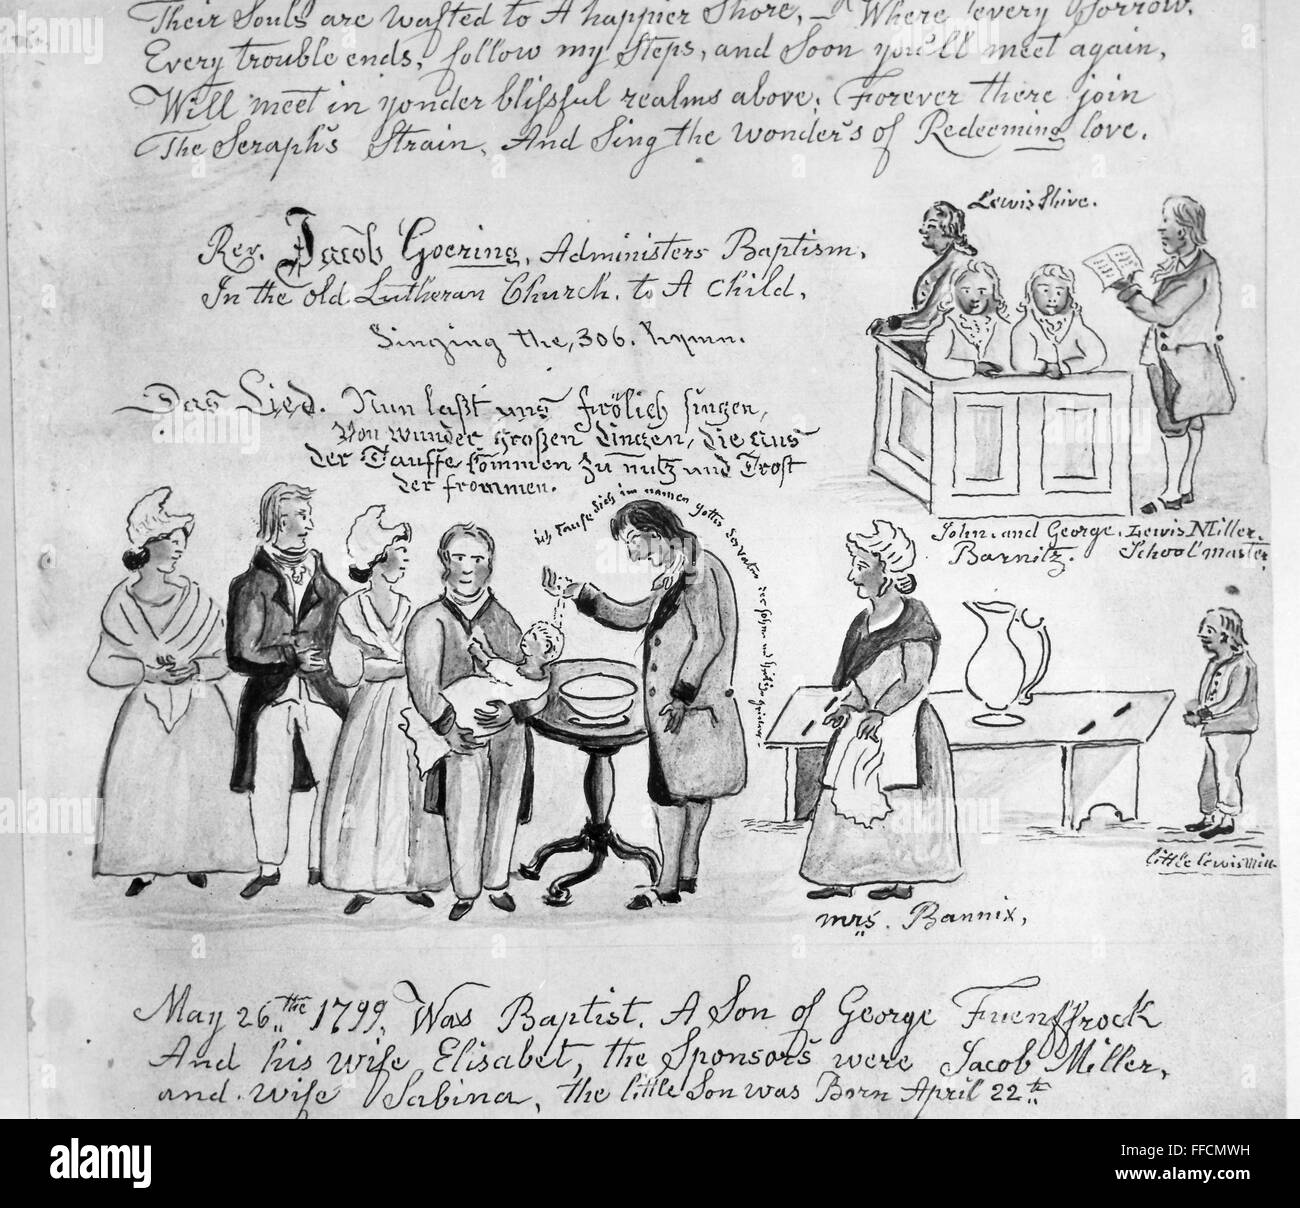 Their Souls are wafted to A happier Shore, – Where every Sorrow.
Every trouble ends, follow my Steps, and Soon you'll meet again,
Will meet in yonder blissful realms above, Forever there join
The Seraph's Strain, And Sing the wonders of Redeeming love.
Lewis Shive.
Rev. Jacob Goering, Administers Baptism,
In the old Lutheran Church. to A Child,
Singing the, 306. hymn.
Das Lied. Nun laßt uns frölich singen,
Von wunder großen Dingen, die aus
der Tauffe kommen zu nutz und Trost
der frommen.
ich Taufe dich im namen gottes des vaters der sohns und heiliges geistes –
John. and George. Barnitz.
Lewis Miller. School master.
little Lewis Mill
mrs. Bannix,
May 26the 1799, Was Baptist. A Son of George Fuenffrock
And his wife Elisabet, the Sponsors were Jacob Miller,
and wife Sabina, the little Son was Born April 22th
alamy
a
FFCMWH
www.alamy.com